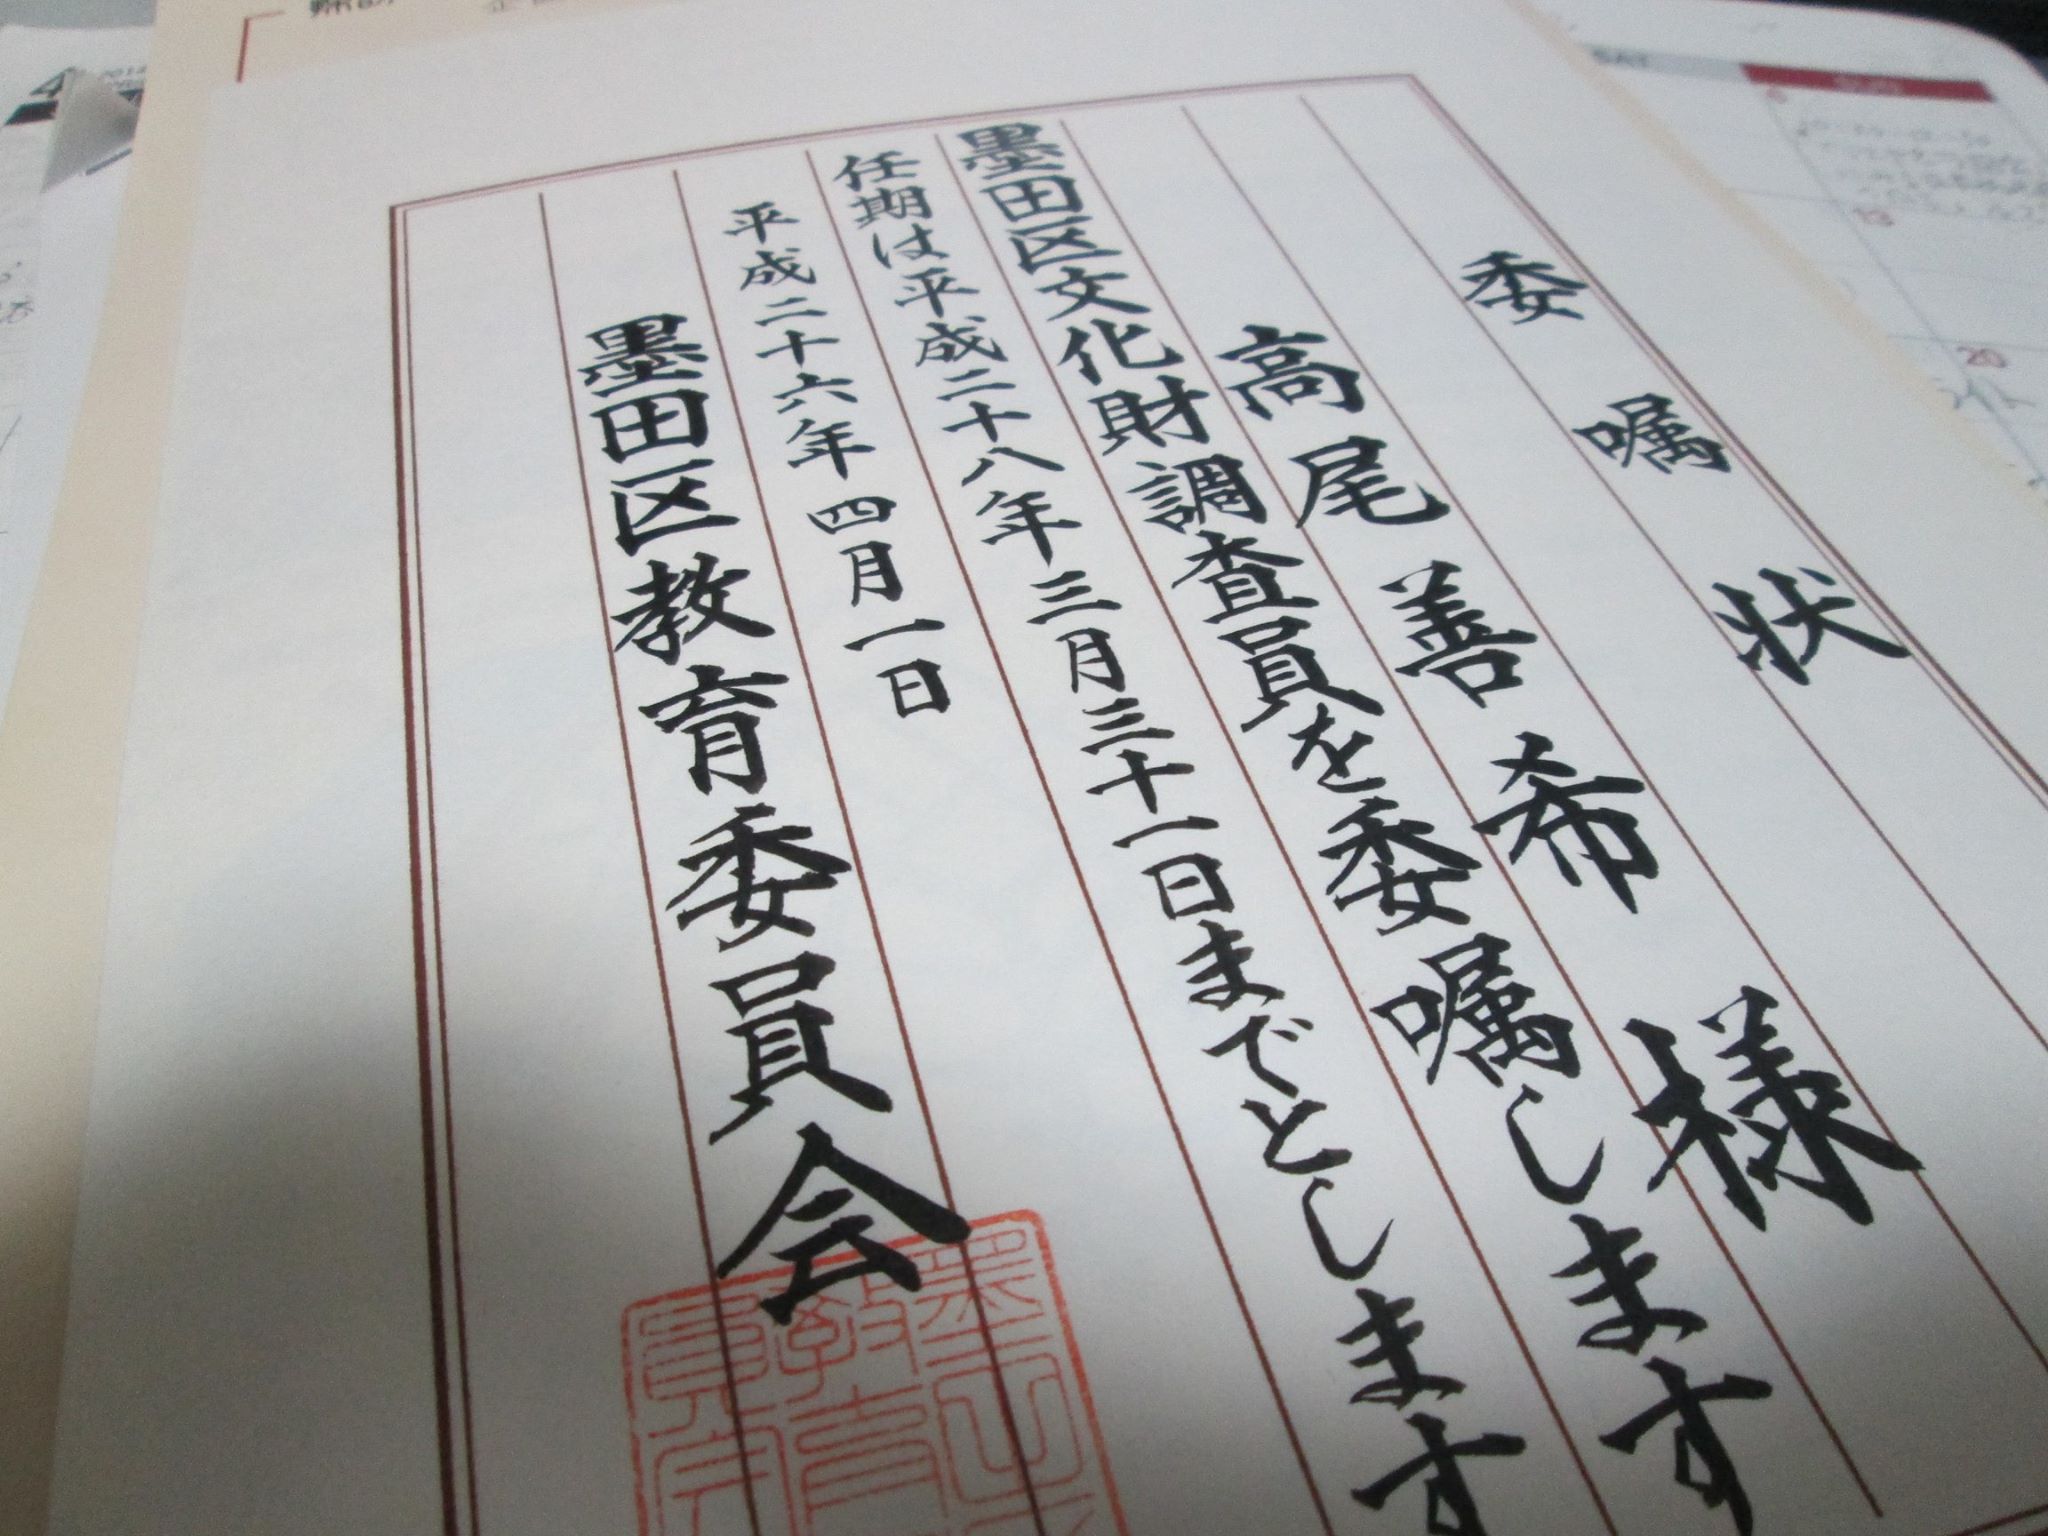 委嘱状
高尾善希様
墨田区文化財調査員を委嘱します
任期は平成二十八年三月三十一日までとします
平成二十六年四月一日
墨田区教育委員会